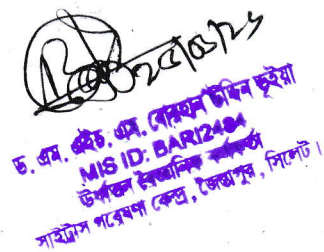 ড. এম. এইচ. এম. বোরহান উদ্দিন ভূইয়া
MIS ID: BARI2484
উর্ধ্বতন বৈজ্ঞানিক কর্মকর্তা
সাইট্রাস গবেষণা কেন্দ্র, জৈন্তাপুর, সিলেট।